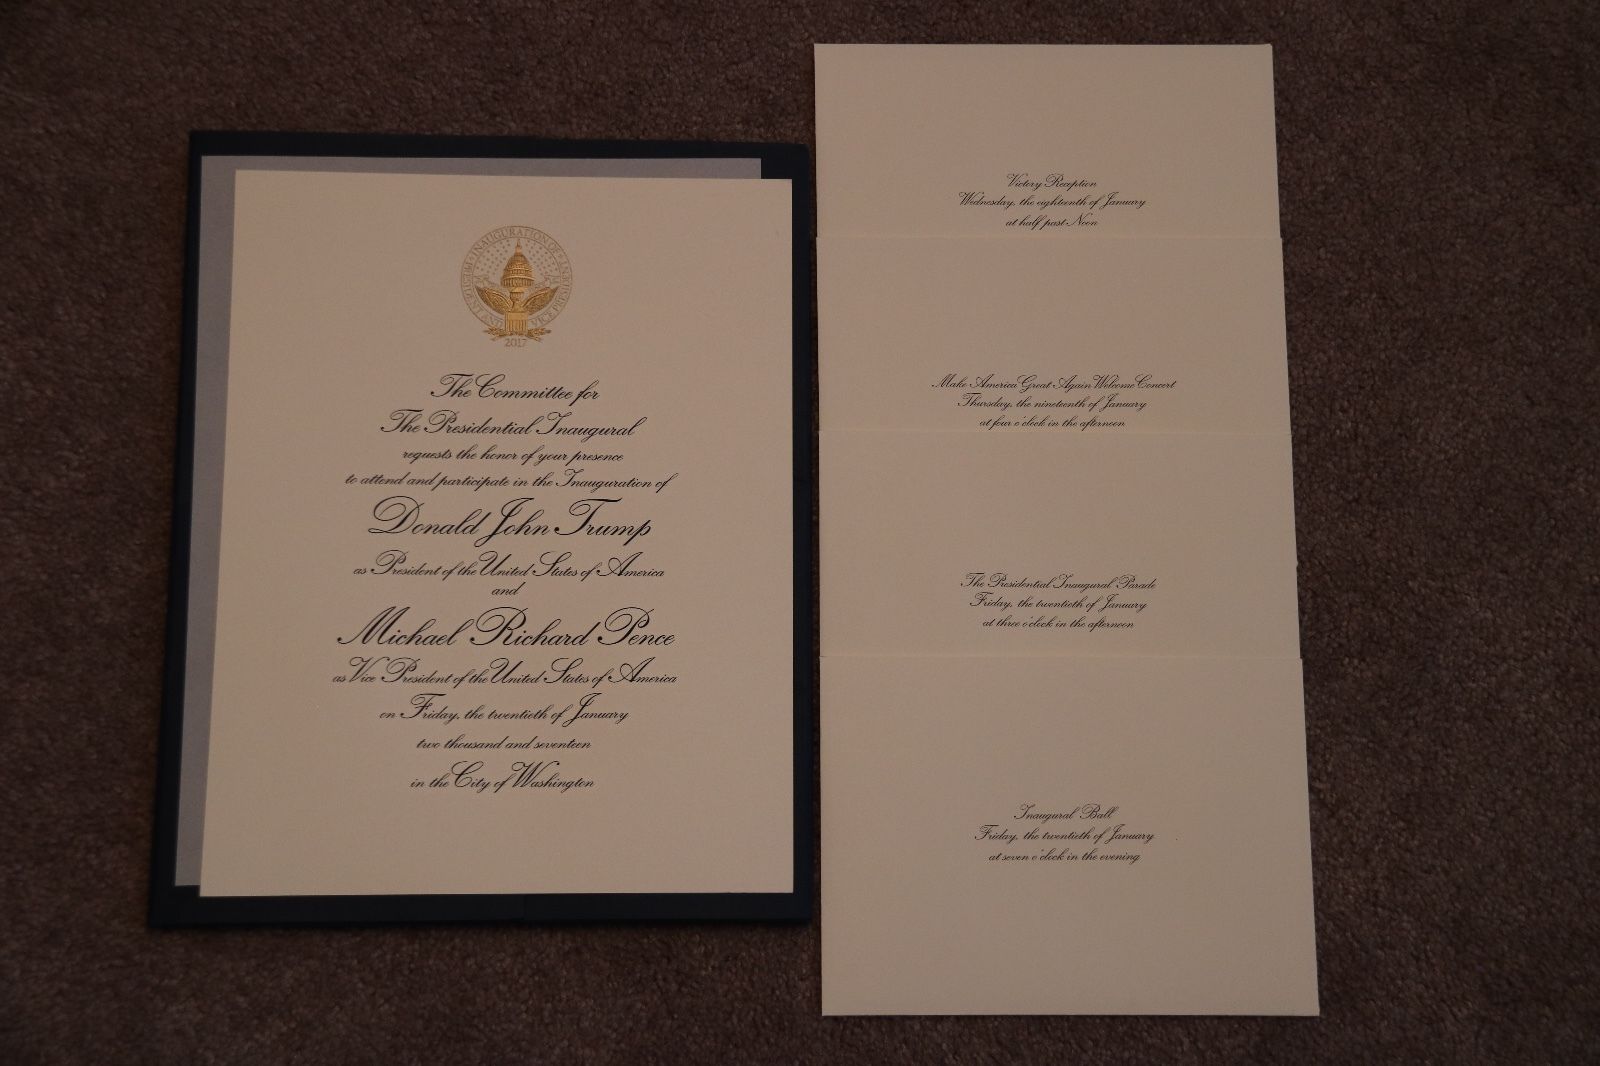 INAUGURATION OF PRESIDENT AND VICE PRESIDENT
2017
The Committee for
The Presidential Inaugural
requests the honor of your presence
to attend and participate in the Inauguration of
Donald John Trump
as President of the United States of America
and
Michael Richard Pence
as Vice President of the United States of America
on Friday, the twentieth of January
two thousand and seventeen
in the City of Washington
Victory Reception
Wednesday, the eighteenth of January
at half past Noon
Make America Great Again Welcome Concert
Thursday, the nineteenth of January
at four o'clock in the afternoon
The Presidential Inaugural Parade
Friday, the twentieth of January
at three o'clock in the afternoon
Inaugural Ball
Friday, the twentieth of January
at seven o'clock in the evening